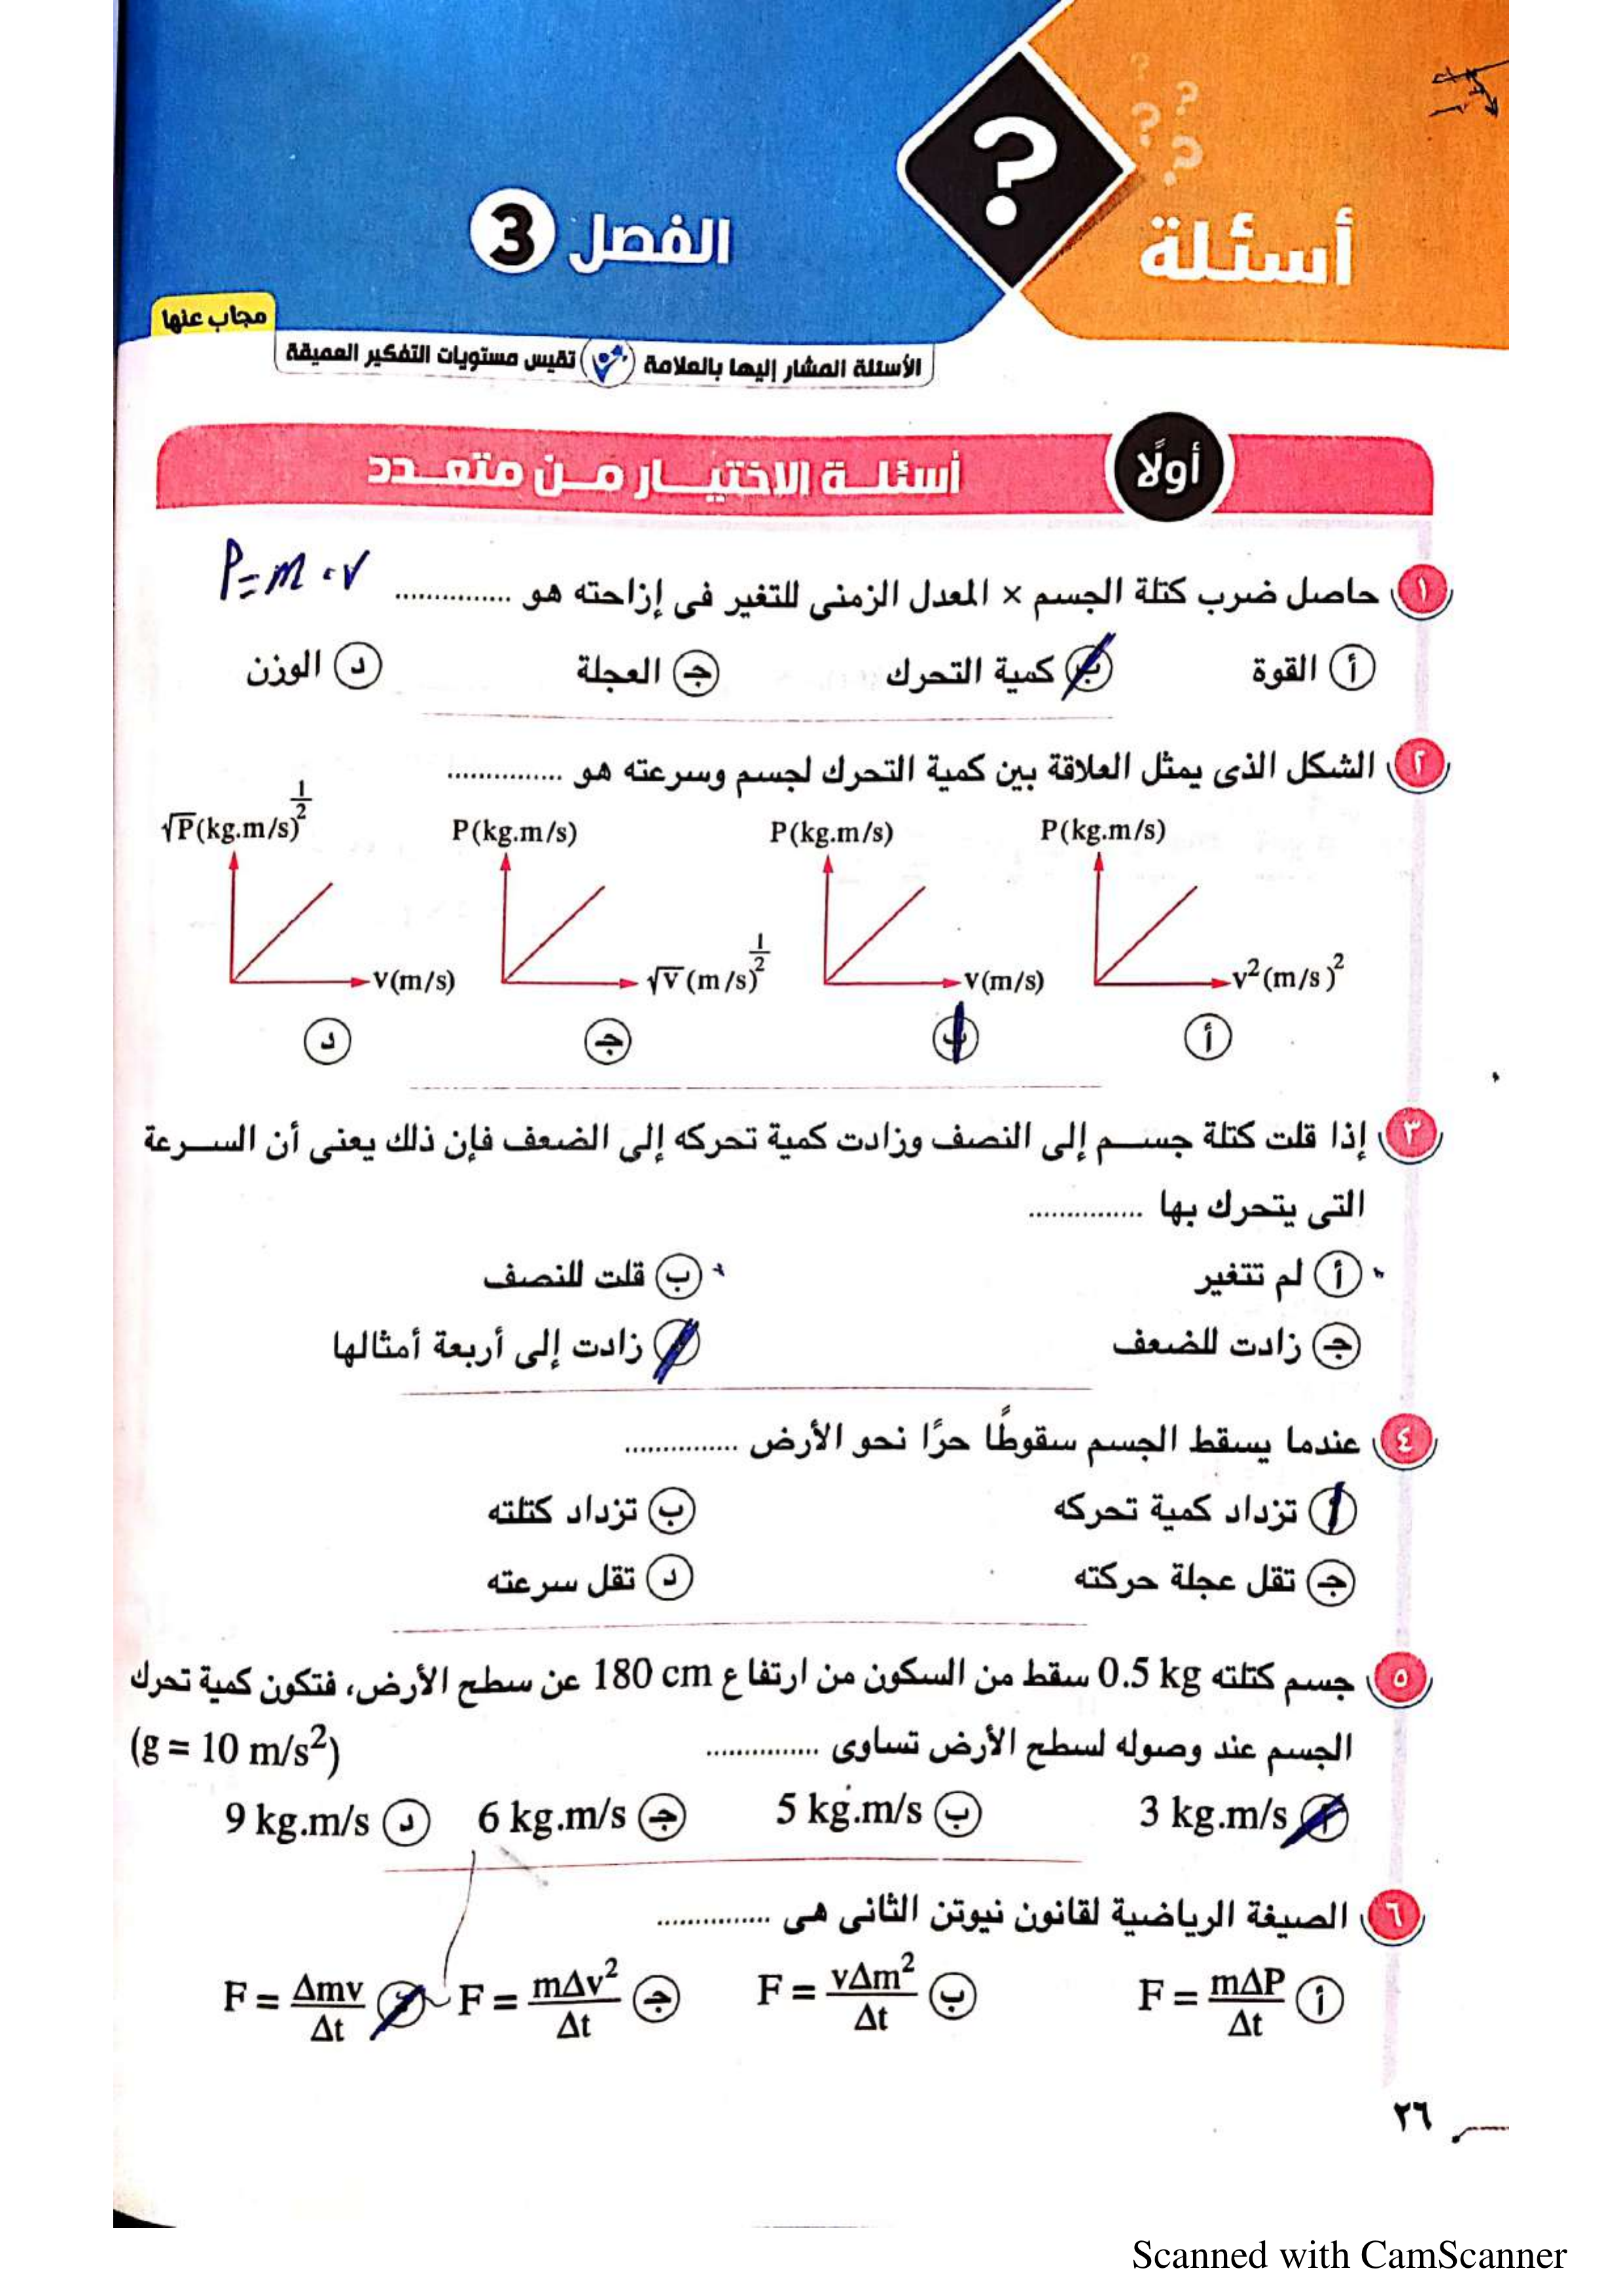 أسئلة
الفصل 3
مجاب عنها
الأسئلة المشار إليها بالعلامة تقيس مستويات التفكير العميقة
أولًا أسئلة الاختيار من متعدد
P=m.v
١ حاصل ضرب كتلة الجسم × المعدل الزمنى للتغير فى إزاحته هو ...............
أ القوة ب كمية التحرك ج العجلة د الوزن
٢ الشكل الذى يمثل العلاقة بين كمية التحرك لجسم وسرعته هو ...............
P(kg.m/s) P(kg.m/s) P(kg.m/s) √P(kg.m/s)^½
v²(m/s)² v(m/s) √v(m/s)^½ v(m/s)
أ ب ج د
٣ إذا قلت كتلة جسم إلى النصف وزادت كمية تحركه إلى الضعف فإن ذلك يعنى أن السرعة
التى يتحرك بها ...............
أ لم تتغير ب قلت للنصف
ج زادت للضعف د زادت إلى أربعة أمثالها
٤ عندما يسقط الجسم سقوطًا حرًا نحو الأرض ...............
أ تزداد كمية تحركه ب تزداد كتلته
ج تقل عجلة حركته د تقل سرعته
٥ جسم كتلته 0.5 kg سقط من السكون من ارتفاع 180 cm عن سطح الأرض، فتكون كمية تحرك
الجسم عند وصوله لسطح الأرض تساوى ............... (g = 10 m/s²)
أ 3 kg.m/s ب 5 kg.m/s ج 6 kg.m/s د 9 kg.m/s
٦ الصيغة الرياضية لقانون نيوتن الثانى هى ...............
أ F = mΔP/Δt ب F = vΔm²/Δt ج F = mΔv²/Δt د F = Δmv/Δt
٢٦
Scanned with CamScanner